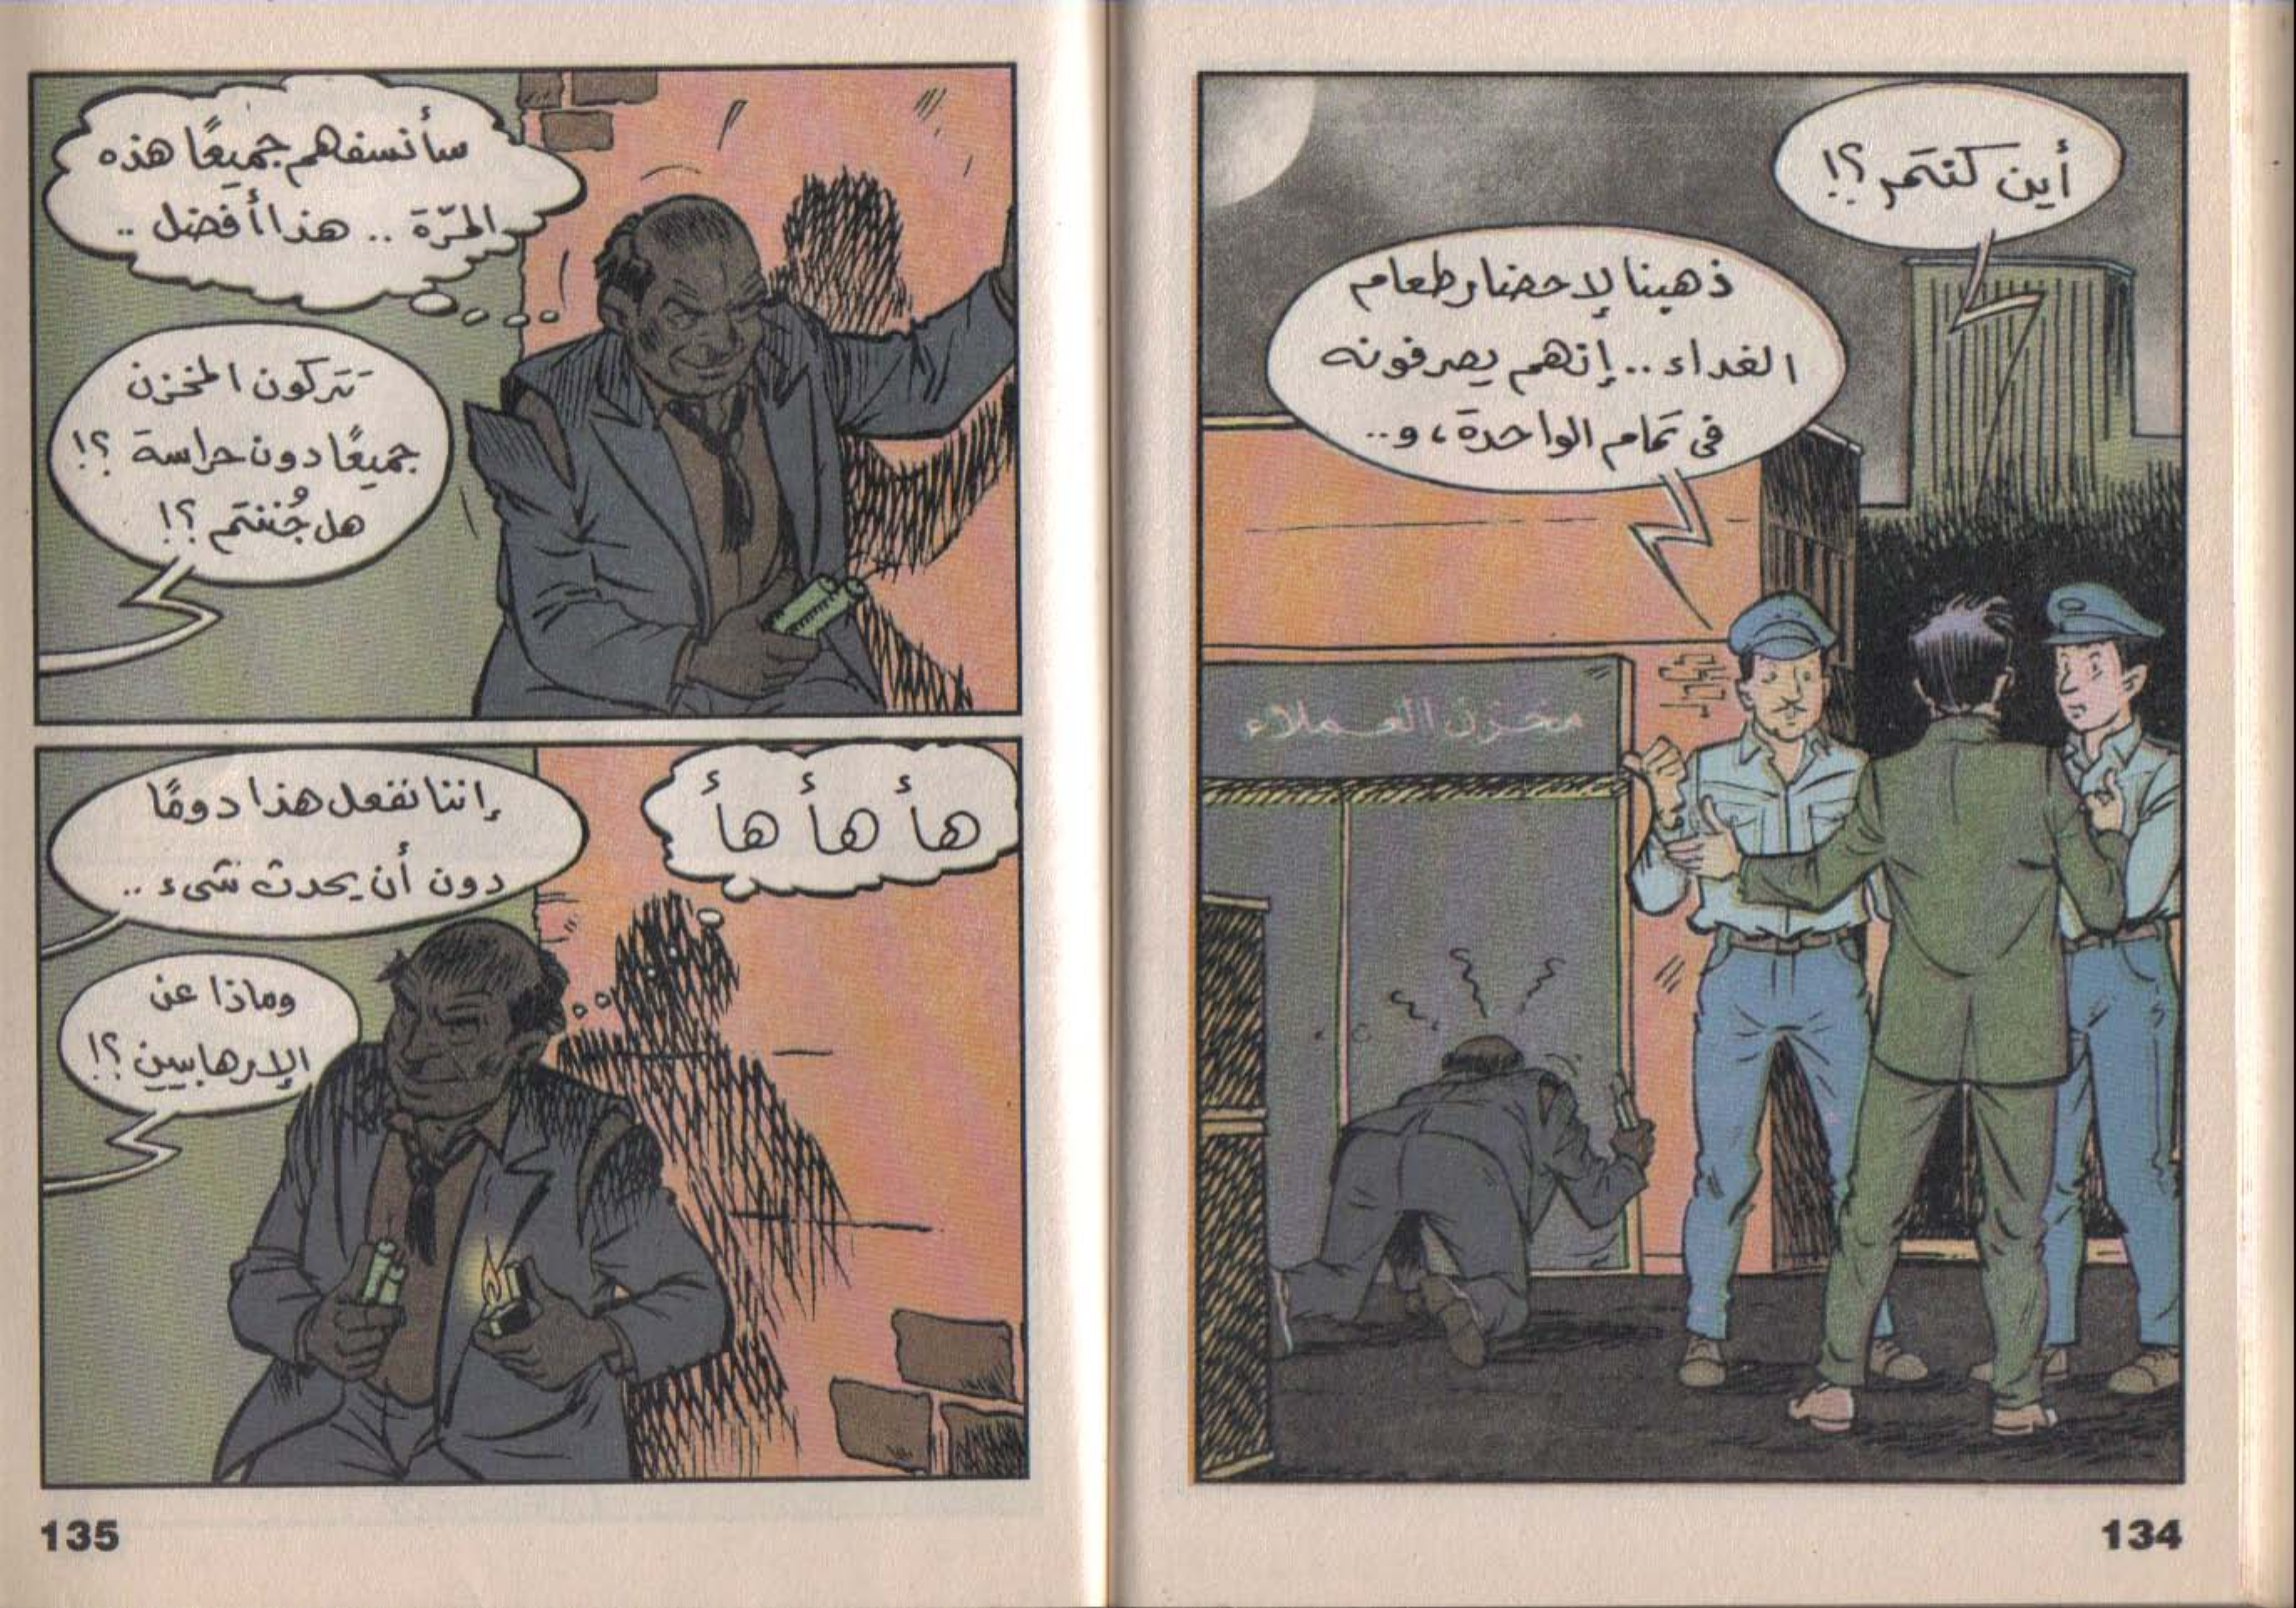 أين كنتم؟!
ذهبنا لإحضار طعام
الغداء .. إنهم يصرفونه
فى تمام الواحدة، و..
مخزن العملاء
134
سأنسفهم جميعًا هذه
المرّة .. هذا أفضل ..
تتركون المخزن
جميعًا دون حراسة ؟!
هل جُننتم ؟!
هأ هأ هأ
إننا نفعل هذا دومًا
دون أن يحدث شىء ..
وماذا عن
الإرهابيين ؟!
135